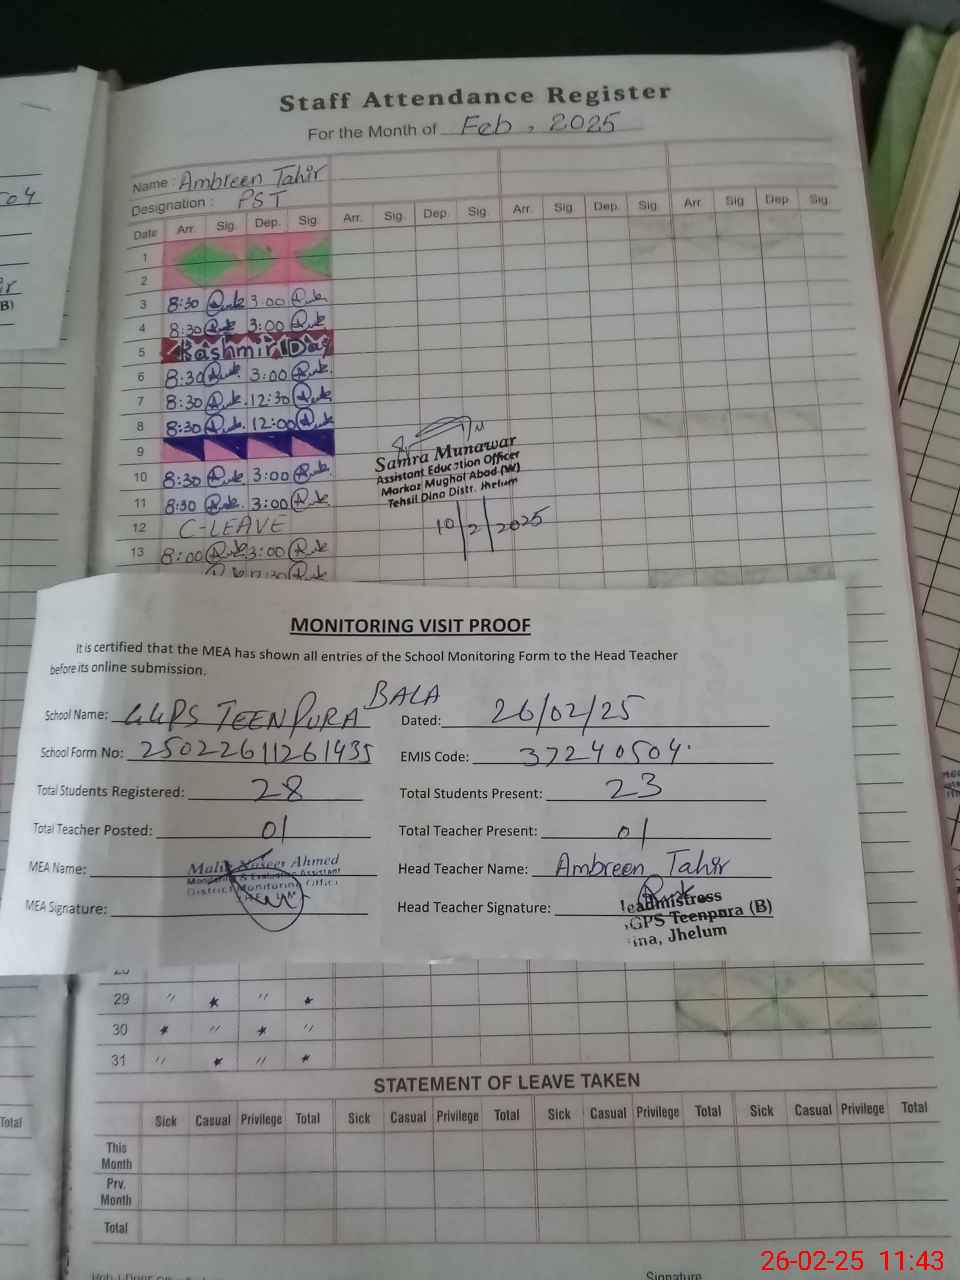 Staff Attendance Register
For the Month of Feb, 2025
Name: Ambreen Tahir
Designation: PST
Date Arr. Sig. Dep. Sig. Arr. Sig. Dep. Sig. Arr. Sig. Dep. Sig. Arr. Sig. Dep. Sig.
1
2
3 8:30 3:00
4 8:30 3:00
5 Kashmir Day
6 8:30 3:00
7 8:30 12:30
8 8:30 12:00
9
10 8:30 3:00
11 8:30 3:00
12 C-LEAVE
13 8:00 3:00
Samra Munawar
Assistant Education Officer
Markaz Mughal Abad (W)
Tehsil Dina Distt. Jhelum
10/2/2025
MONITORING VISIT PROOF
It is certified that the MEA has shown all entries of the School Monitoring Form to the Head Teacher
before its online submission.
School Name: GGPS TEENPURA BALA Dated: 26/02/25
School Form No: 25022611261435 EMIS Code: 37240504
Total Students Registered: 28 Total Students Present: 23
Total Teacher Posted: 01 Total Teacher Present: 01
MEA Name: Malik Naseer Ahmed Head Teacher Name: Ambreen Tahir
Monitoring & Evaluation Assistant
District Monitoring Office
MEA Signature: Head Teacher Signature:
Headmistress
GPS Teenpura (B)
ina, Jhelum
29 〃 ★ 〃 ★
30 ★ 〃 ★ 〃
31 〃 ★ 〃 ★
STATEMENT OF LEAVE TAKEN
Sick Casual Privilege Total Sick Casual Privilege Total Sick Casual Privilege Total Sick Casual Privilege Total
This Month
Prv. Month
Total
Signature
Total
(B)
26-02-25 11:43